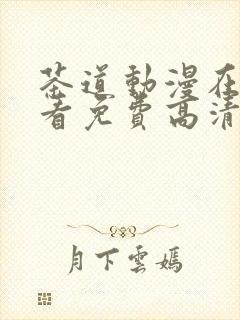 茶道動漫在
看免費高清
月下雲嫣